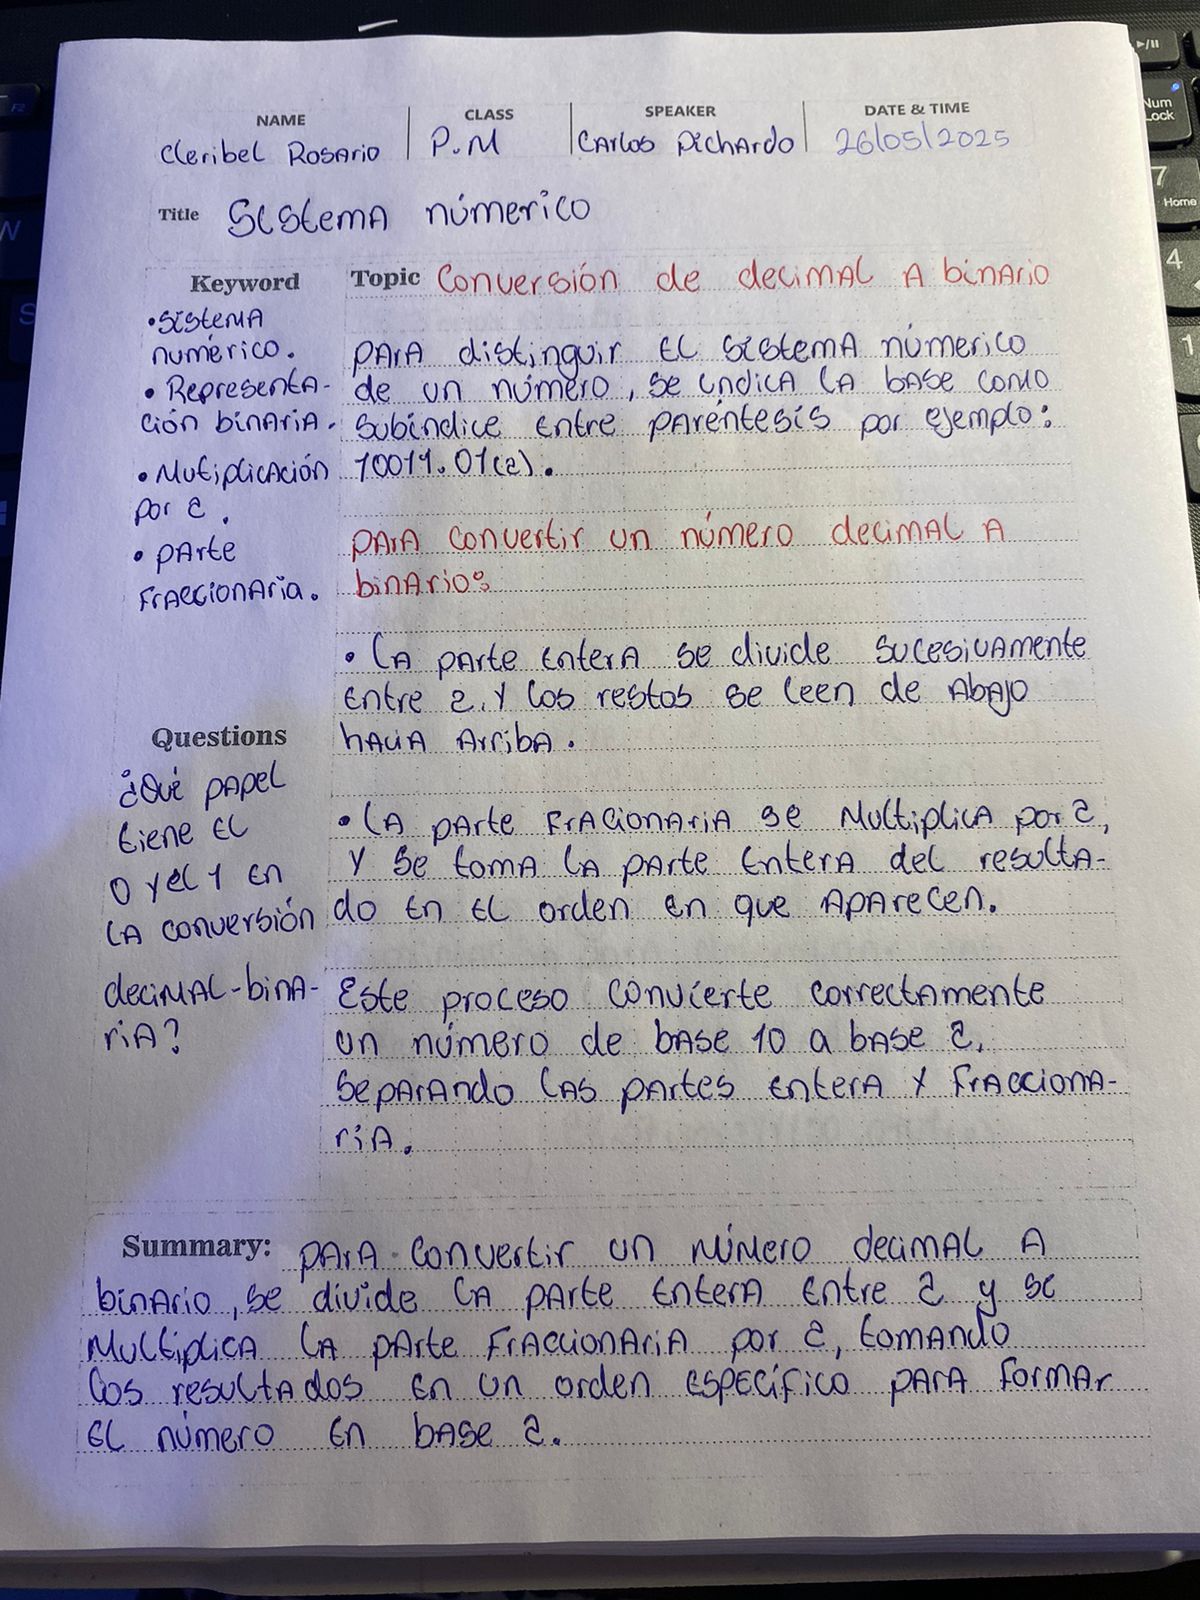 NAME
Cleribel Rosario
CLASS
P.M
SPEAKER
Carlos Pichardo
DATE & TIME
26/05/2025
Title Sistema númerico
Keyword
• Sistema
numérico.
• Representa-
ción binaria.
• Mutiplicación
por 2.
• Parte
Fraccionaria.
Questions
¿Qué papel
tiene el
0 y el 1 en
la conversión
decimal-bina-
ria?
Topic Conversión de decimal a binario
Para distinguir el sistema númerico
de un número, se indica la base como
subíndice entre paréntesis por ejemplo:
10011.01(2).
Para convertir un número decimal a
binario:
• La parte entera se divide sucesivamente
entre 2, y los restos se leen de abajo
hacia arriba.
• La parte fracionaria se multiplica por 2,
y se toma la parte entera del resulta-
do en el orden en que aparecen.
Este proceso convierte correctamente
un número de base 10 a base 2,
separando las partes entera y fracciona-
ria.
Summary: Para convertir un número decimal a
binario, se divide la parte entera entre 2 y se
multiplica la parte fraccionaria por 2, tomando
los resultados en un orden específico para formar
el número en base 2.
F2
W
S
Num
Lock
7
Home
4
1